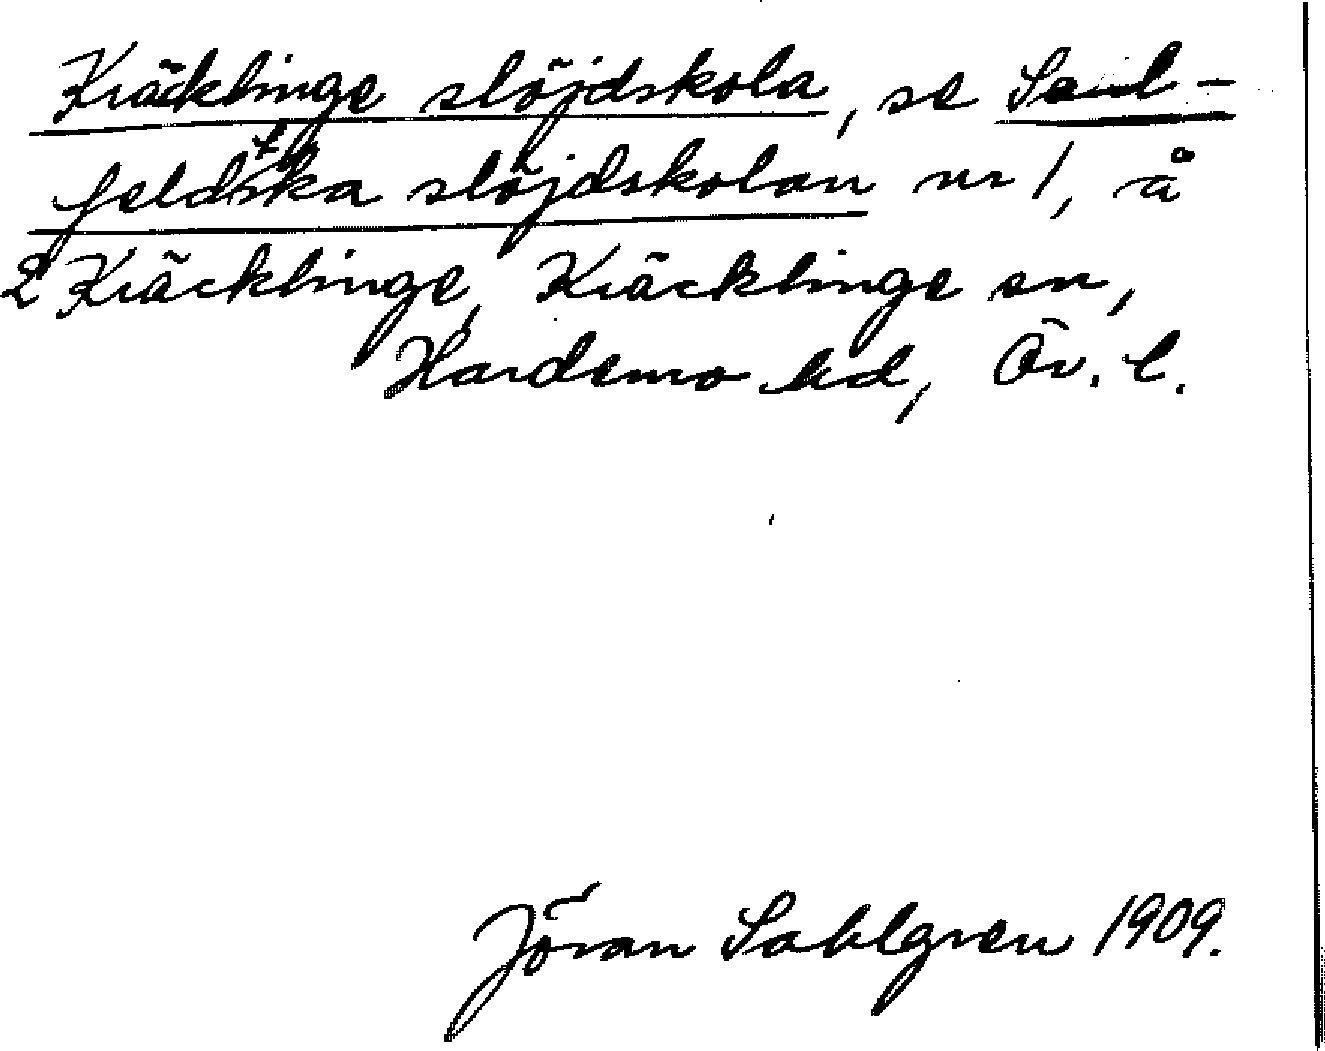 Kräcklinge slöjdskola, se Seid-
feldtska slöjdskolan nr 1, å
2 Kräcklinge, Kräcklinge sn,
Hardemo hd, Ör. l.
Jöran Sahlgren 1909.